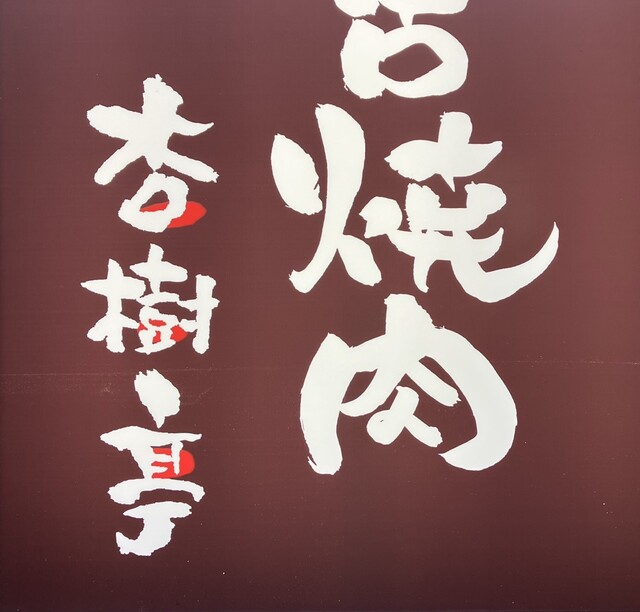 焼肉
杏樹亭